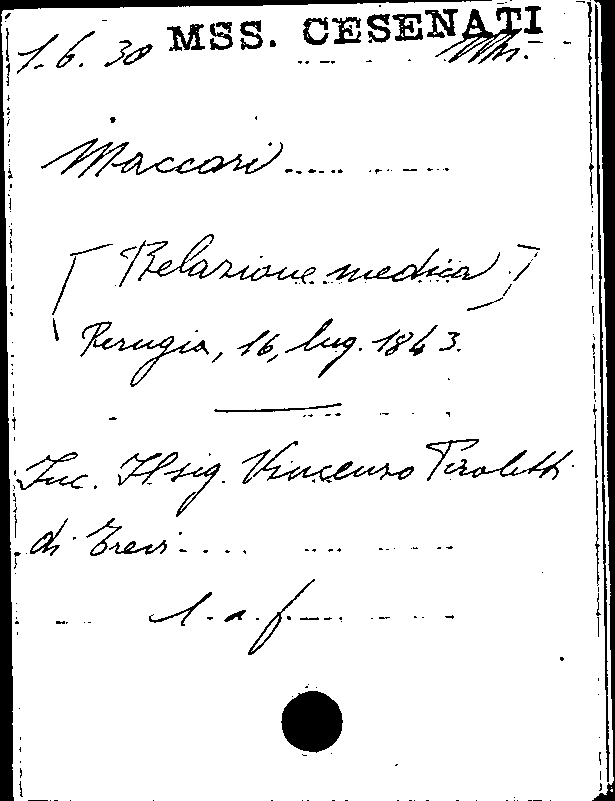 MSS. CESENATI
1.6.30
Maccari
[Relazione medica]
Perugia, 16, lug. 1843.
Inc. Il sig. Vincenzo Piroletti
di Trevi
l. a. f.